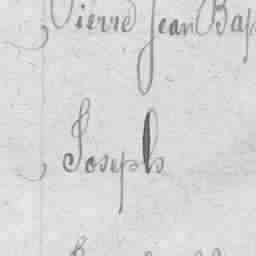 Pierre Jean Bap
Joseph